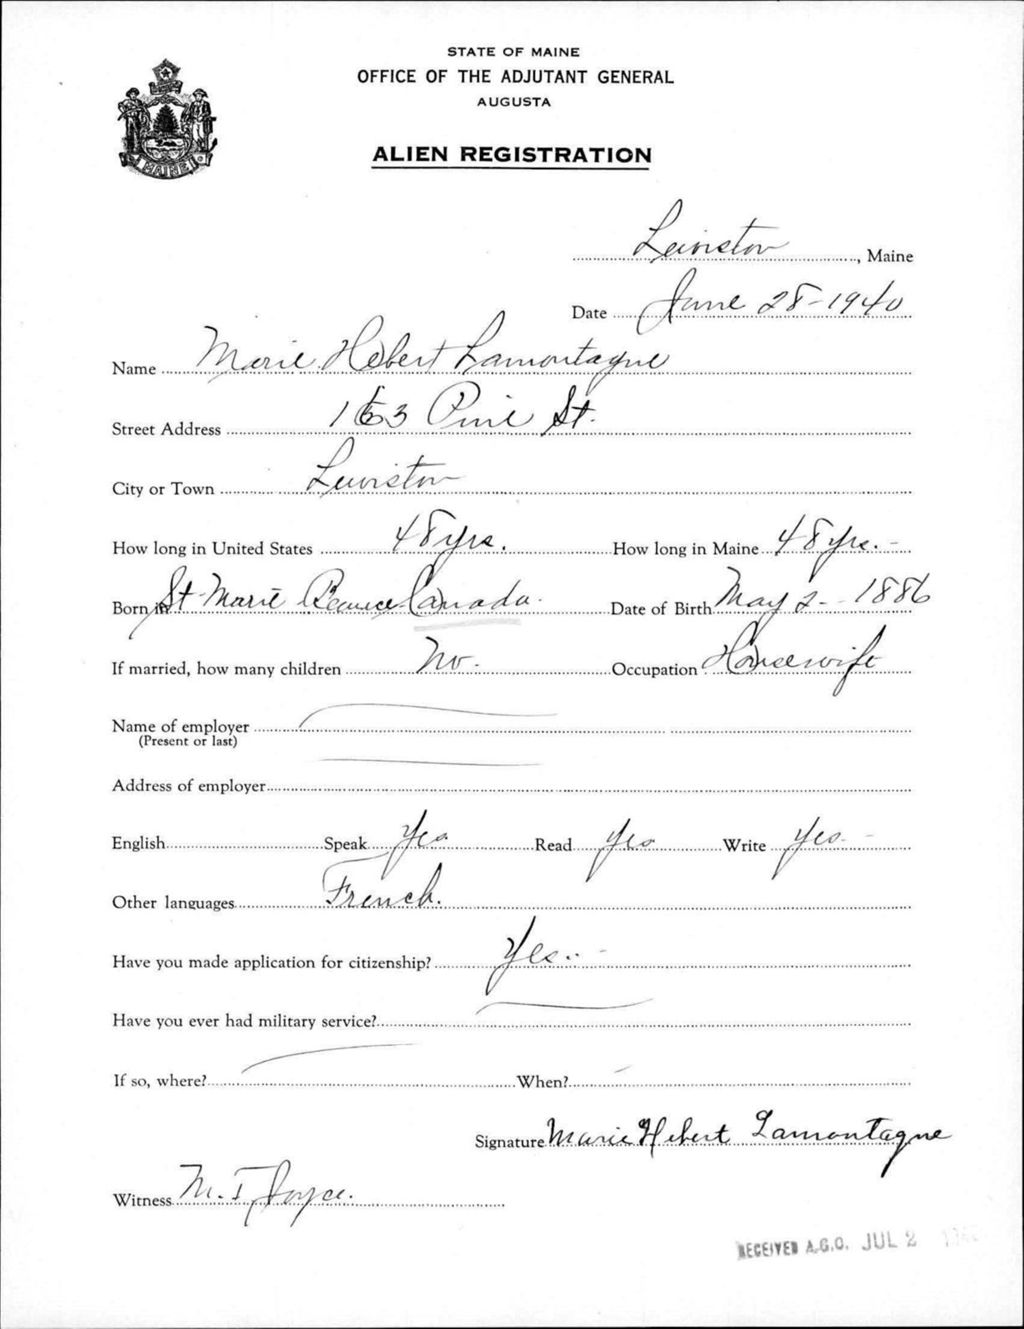 STATE OF MAINE
OFFICE OF THE ADJUTANT GENERAL
AUGUSTA
ALIEN REGISTRATION
MAINE
Lewiston, Maine
Date June 28-1940
Name Marie Hebert Lamontagne
Street Address 163 Pine St.
City or Town Lewiston
How long in United States 48 yrs. How long in Maine 48 yrs. -
Born in St Marie Beauce Canada. Date of Birth May 2 - 1886
If married, how many children No. Occupation Housewife
Name of employer
(Present or last)
Address of employer
English Speak Yes Read Yes Write Yes -
Other languages French.
Have you made application for citizenship? Yes. -
Have you ever had military service?
If so, where? When?
Signature Marie Hebert Lamontagne
Witness M. T. Joyce.
RECEIVED A.G.O. JUL 2